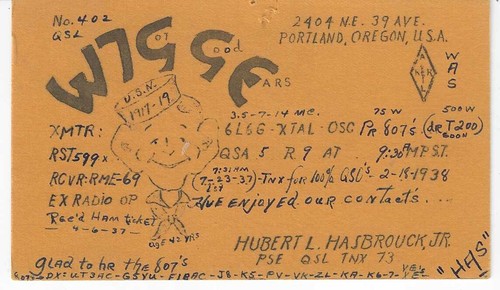 No. 402
QSL
2404 N.E. 39 AVE.
PORTLAND, OREGON, U.S.A.
W7GGE
Got Good Ears
A R R L
WAS
U.S.N.
1917-19
3.5-7-14 MC.
75W
500W
XMTR:
6L6G-XTAL-OSC PR 807's (or T200)
SOON
RST 599X
QSA 5 R 9 AT 9:30 P.M. P.S.T.
RCVR: RME-69
7:31 AM
(7-23-37) - TNX for 100% QSL's - 2-18-1938
EX RADIO OP
Have enjoyed our contacts...
Rec'd Ham ticket
-4-6-37-
age 42 YRS
HUBERT L. HASBROUCK, JR.
PSE QSL TNX 73
"HAS"
glad to hr the 807's
DX: UT3AC-G5YU-F18AC-J8-K5-PY-VK-ZL-KA-K6-7-VE's